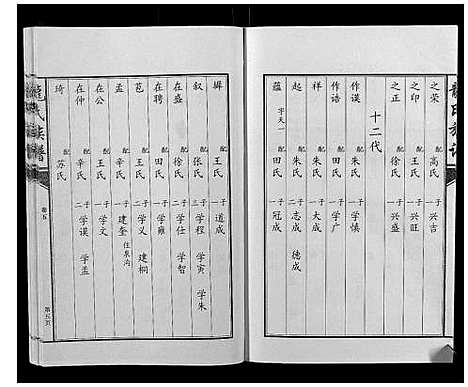 之荣 配高氏 子一 兴吉
之印 配王氏 子一 兴旺
之正 配徐氏 子一 兴盛
十二代
作谟 配朱氏 子一 学慎
作诰 配田氏 子一 学广
祥 配朱氏 子一 大成
起 配朱氏 子二 志成 德成
蕴 字天一 配田氏 子一 冠成
配王氏 子一 道成
叙 配张氏 子三 学程 学寅 学朱
在盛 配徐氏 子二 学仕 学智
在聘 配田氏 子一 学雍
苞 配王氏 子二 学义 建桐
孟 配辛氏 子一 建奎 住泉沟
在公 配王氏 子一 学文
在仲 配辛氏 子二 学谟 学孟
琦 配苏氏
氏族谱
卷五
第五页